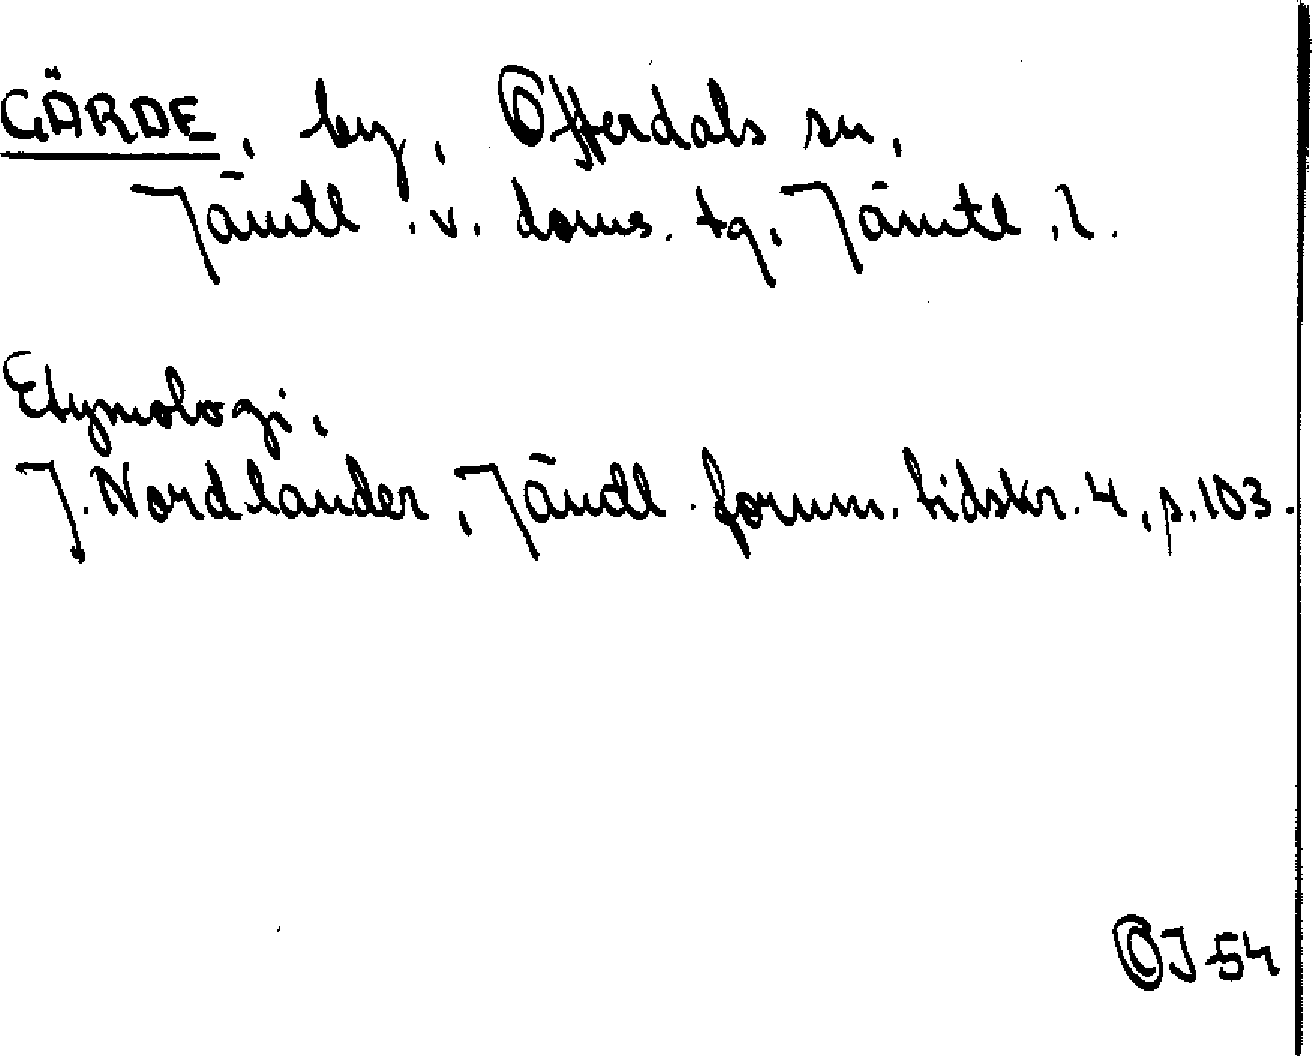 GÄRDE, by, Offerdals sn,
Jämtl. v. doms. tg. Jämtl. l.
Etymologi.
J. Nordlander, Jämtl. fornm. tidskr. 4, s. 103.
OJ 54